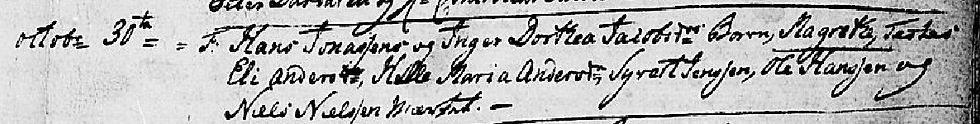 octobr 30th = F. Hans Jonassens og Inger Dorthea Jacobsdr Barn, Magrethe, Testes
Eli andersdr, Helle Maria Andersdr, Syvert Jenssen, Ole Hanssen og
Niels Nielssen